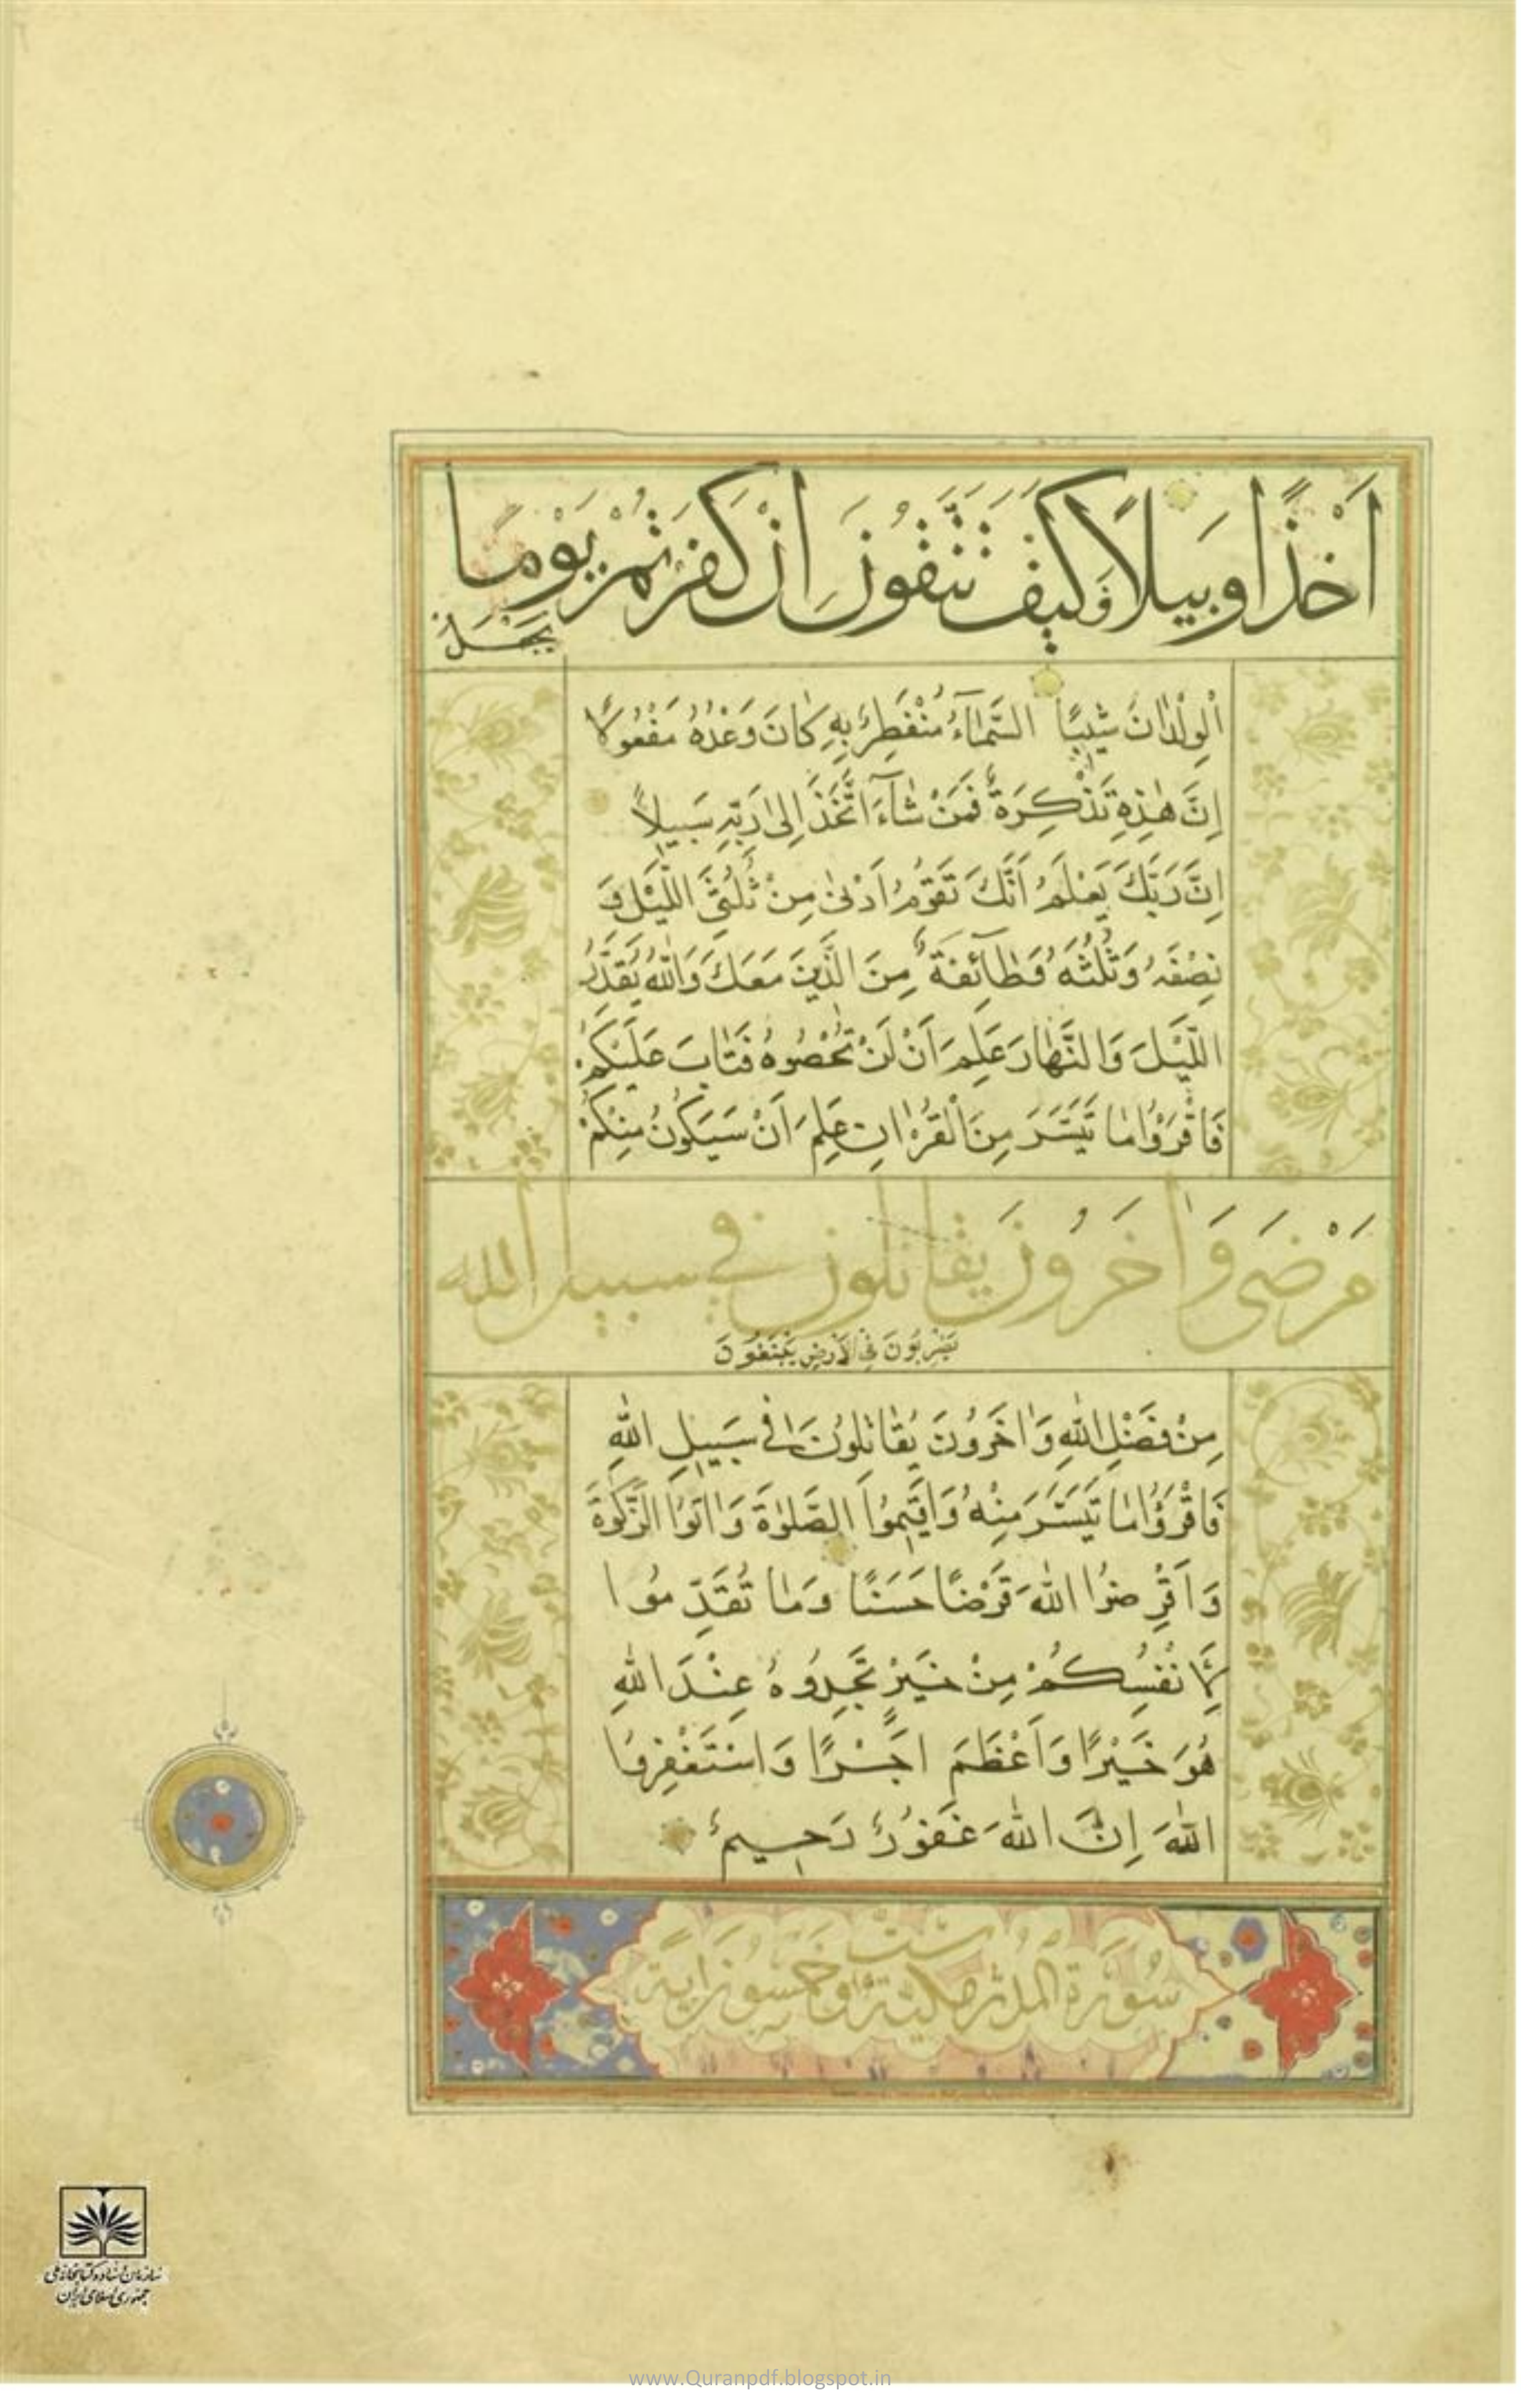 اَخْذًا وَبِيلًا فَكَيْفَ تَتَّقُونَ اِنْ كَفَرْتُمْ يَوْمًا
يَجْعَلُ
الْوِلْدٰانَ شِيبًا السَّمٰآءُ مُنْفَطِرٌ بِهِ كٰانَ وَعْدُهُ مَفْعُولًا
اِنَّ هٰذِهِ تَذْكِرَةٌ فَمَنْ شٰآءَ اتَّخَذَ اِلىٰ رَبِّهِ سَبِيلًا
اِنَّ رَبَّكَ يَعْلَمُ اَنَّكَ تَقُومُ اَدْنىٰ مِنْ ثُلُثَيِ اللَّيْلِ وَ
نِصْفَهُ وَثُلُثَهُ وَطٰآئِفَةٌ مِنَ الَّذِينَ مَعَكَ وَاللّٰهُ يُقَدِّرُ
اللَّيْلَ وَالنَّهٰارَ عَلِمَ اَنْ لَنْ تُحْصُوهُ فَتٰابَ عَلَيْكُمْ
فَاقْرَؤُا مٰا تَيَسَّرَ مِنَ الْقُرْاٰنِ عَلِمَ اَنْ سَيَكُونُ مِنْكُمْ
مَرْضىٰ وَاٰخَرُونَ يقاتلون في سبيل الله
يَضْرِبُونَ فِي الْاَرْضِ يَبْتَغُونَ
مِنْ فَضْلِ اللّٰهِ وَاٰخَرُونَ يُقٰاتِلُونَ فِي سَبِيلِ اللّٰهِ
فَاقْرَؤُا مٰا تَيَسَّرَ مِنْهُ وَاَقِيمُوا الصَّلٰوةَ وَاٰتُوا الزَّكٰوةَ
وَاَقْرِضُوا اللّٰهَ قَرْضًا حَسَنًا وَمٰا تُقَدِّمُوا
لِاَنْفُسِكُمْ مِنْ خَيْرٍ تَجِدُوهُ عِنْدَ اللّٰهِ
هُوَ خَيْرًا وَاَعْظَمَ اَجْرًا وَاسْتَغْفِرُوا
اللّٰهَ اِنَّ اللّٰهَ غَفُورٌ رَحِيمٌ
سورة المدثر مكية ست وخمسون اية
سازمان اسناد و کتابخانه ملی
جمهوری اسلامی ایران
www.Quranpdf.blogspot.in